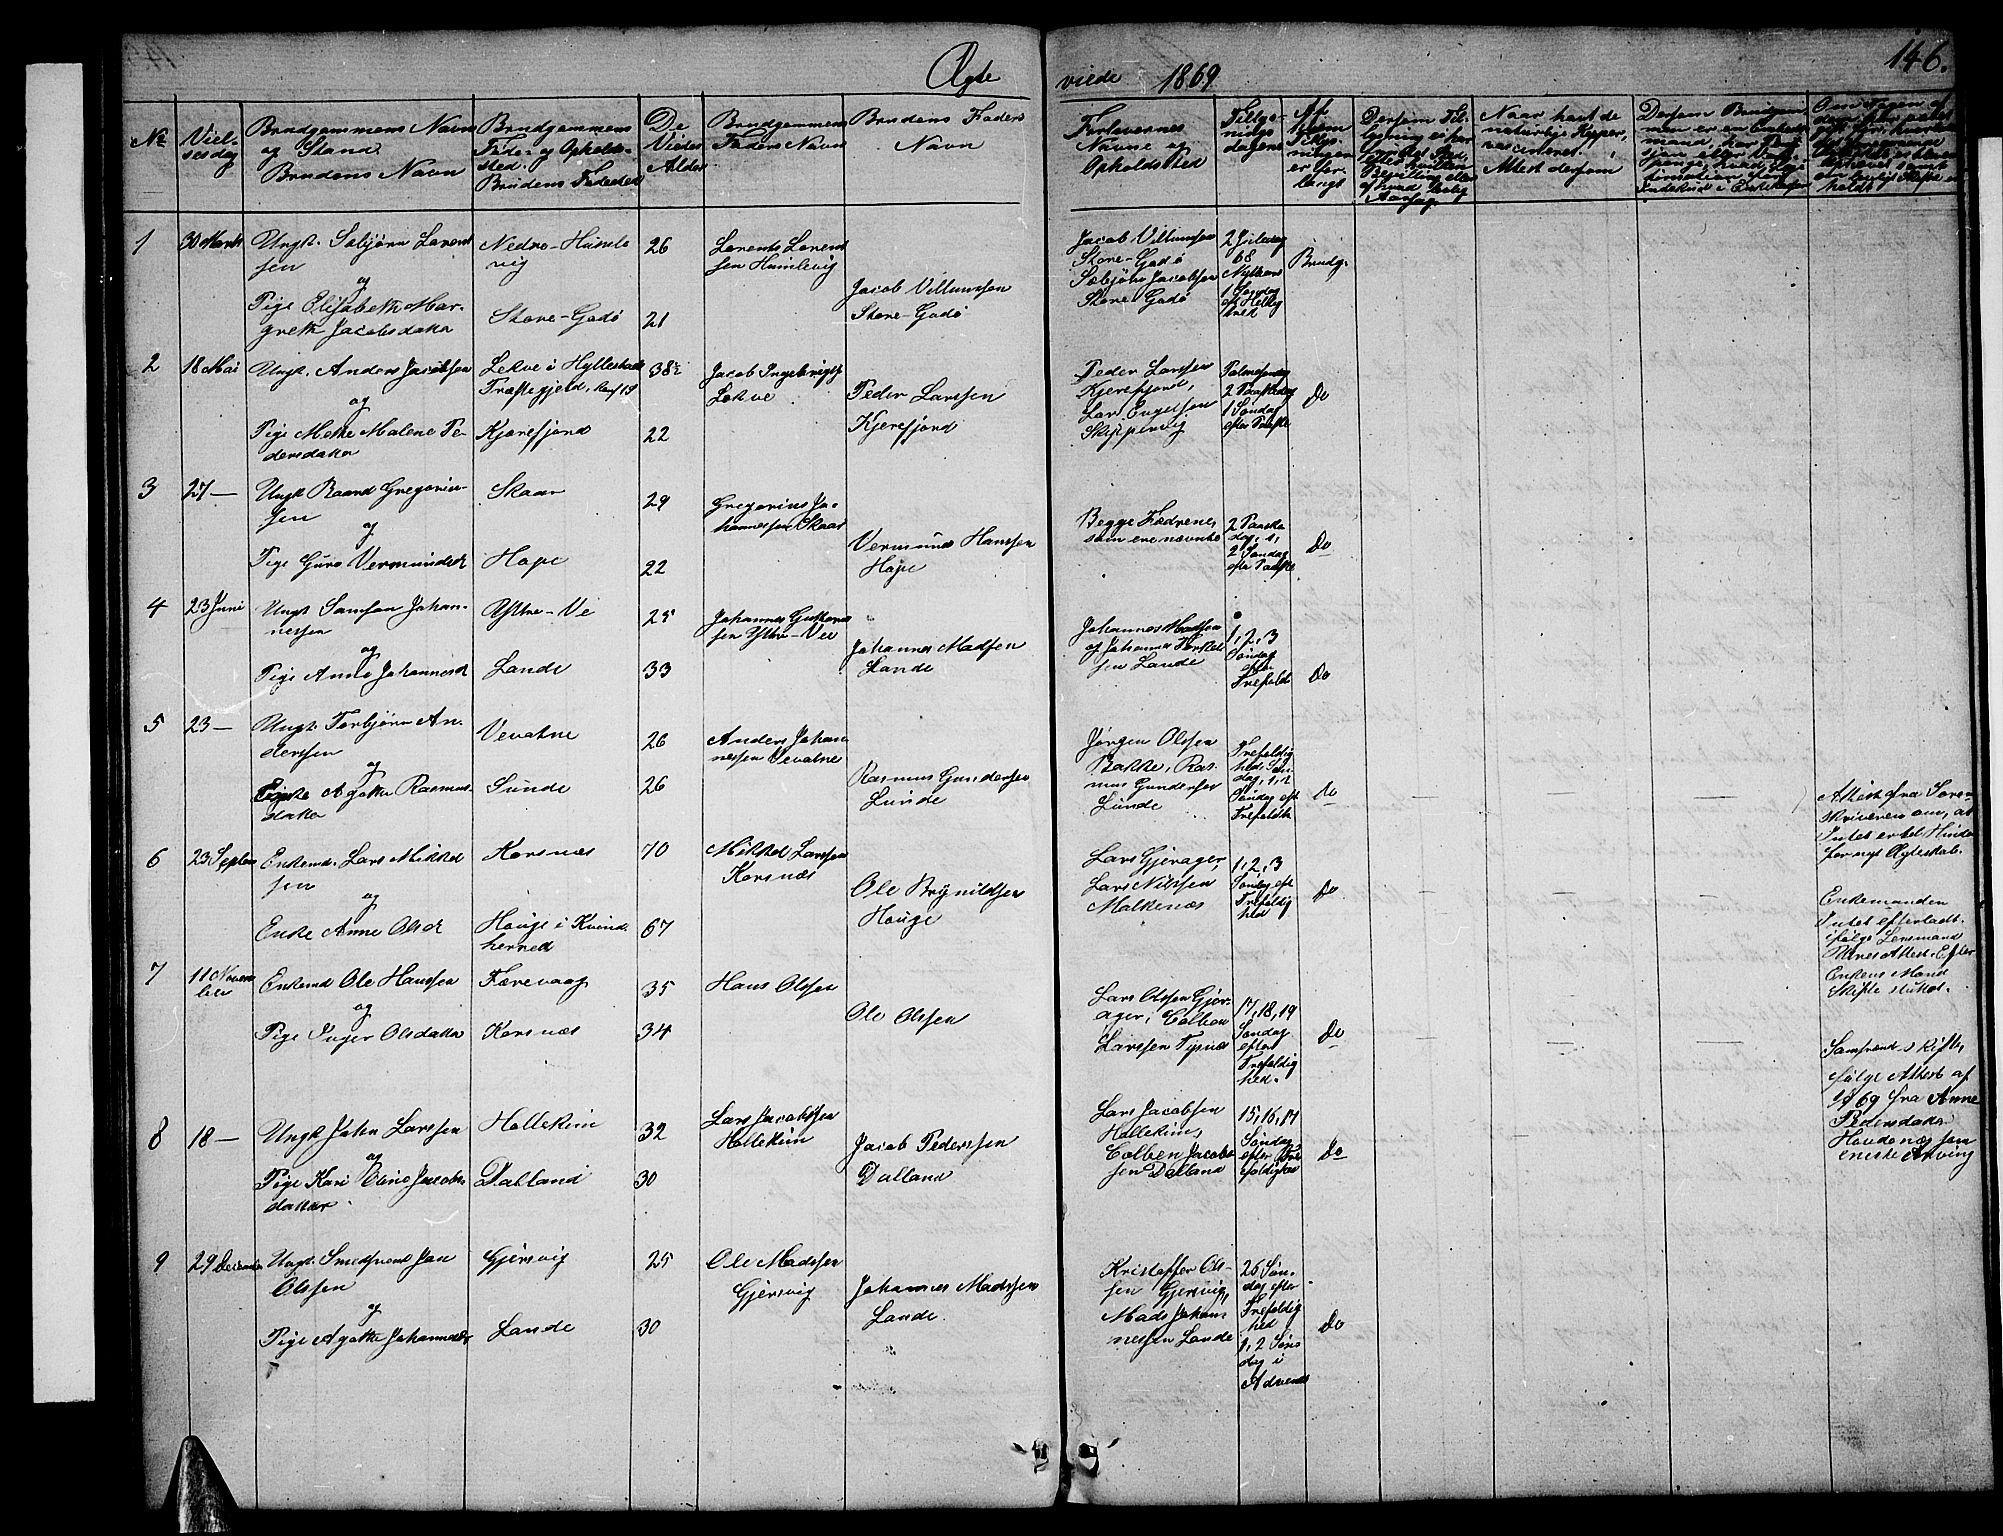 146.
Ægte
viede 1869
No
Viel-
sesdag
Brudgommens Navn
og Stand.
Brudens Navn
Brudgommens
Føde- og Opholds-
sted.
Brudens Fødested
De
Viedes
Alder
Brudgommens
Faders Navn
Brudens Faders
Navn
Forlovernes
Navne og
Opholdssted
Tillys-
nings
dagene
Af
hvem
Tillys-
ningen
er for-
langt
Naar havt de
naturlige Kopper,
vaccineret.
Attest derfom
1
30 Marts
Ungk. Sæbjørn Larent
sen
og
Pige Elisabeth Mar-
greth Jacobsdatter
Nedre-Humle
vig
Store-Godø
26
21
Larents Larent
sen Humlevig
Jacob Villumsen
Store-Godø
Jacob Villumsen
Store-Godø
Sæbjørn Jacobsen
Store Godø
2 Juledag
68
Nytaars
1 Søndag
eft Hellig
tred
Brudg.
2
18 Mai
Ungk. Anders Jacobsen
og
Pige Mette Malene Pe-
dersdatter
Lekve i Hyllestad
Præstegjeld,
Kjærefjord
38½
22
Jacob Ingebrigts
Lekve
Peder Larssen
Kjerefjord
Peder Larssen
Kjerefjord,
Lars Engelsen
Skippervig
Palmesøndag
2 Paaskedag
1 Søndag
efter Paaske
Do
3
27 —
Ungk Baard Gregorius-
sen
og
Pige Guro Vermundsd
Skaar
Hope
29
22
Gregorius Jo-
hannessen Skaar
Vermund Hanssen
Hope
Begge Fædrene,
som ere nævnte
2 Paaske
dag, 1,
2 Søndag
efter Paaske
Do
4
23 Juni
Ungk Samson Johan-
nessen
og
Pige Anna Johannesd
Ystre-Ve
Lande
25
33
Johannes Guttorms
sen Ystre-Vee
Johannes Madsen
Lande
Johannes Madsen
og Johannes
sen Lande
1, 2, 3
Søndag
efter
Trefold.
Do
5
23 —
Ungk. Torbjørn An-
derssen
og
Pige Agatha Rasmus-
datter
Vevatne
Lunde
26
26
Anders Johan
nessen Vevatne
Rasmus Gundersen
Lunde
Jørgen Olssen
Bakke, Ras-
mus Gundersen
Lunde
Trefoldig
hed. Søn-
dag, 1, 2
Søndag eft
Trefoldh
Do
Attest fra Soren-
skriveren om, at
Intet er til Hinder
for nyt Ægteskab.
6
23 Septem
Enkemd. Lars Mikkel
sen
og
Enke Anne Olsd
Korsnæs
Houge i Kvind-
herred
70
67
Mikkel Larssen
Korsnæs
Ole Brynildsen
Houge
Lars Gjerager,
Lars Nilssen
Malkenæs
1, 2, 3
Søndag eft
Trefoldig
hed
Do
Enkemanden
Intet efterladt
ifølge Lensmand
Attest. Efter
Enkens Mand
Skifte sluttet.
7
11 Novem
ber
Enkemd Ole Hanssen
og
Pige Inger Olsdatter
Færevaag
Korsnæs
35
34
Hans Olssen
Ole Olssen
Lars Olssen Gjer-
ager, Colben
Larssen Tysnæs
17, 18, 19
Søndag
efter
Trefoldig
hed.
Do
Samfrænd. skifte,
ifølge Attest af
1869 fra Anne
Pedersdatter
Houdenæs som
eneste Arving
8
18 —
Ungk John Larssen
og
Pige Kari Eline Jacobs
datter
Hollekim
Dalland
32
30
Lars Jacobssen
Hollekim
Jacob Pederssen
Dalland
Lars Jacobsen
Hollekim,
Colben Jacobs
sen Dalland
15, 16, 17
Søndag
efter Tre
foldighed
Do
9
29 December
Ungk. Smedsvend Jan
Olssen
og
Pige Agathe Johannesd.
Gjersvig
Lande
25
30
Ole Madssen
Gjersvig
Johannes Madssen
Lande.
Kristoffer Ols-
sen Gjersvig,
Mads Johan-
nessen Lande
26 Søn-
dag efter
Trefoldig
hed
1, 2 Søn-
dag i
Advent
Do